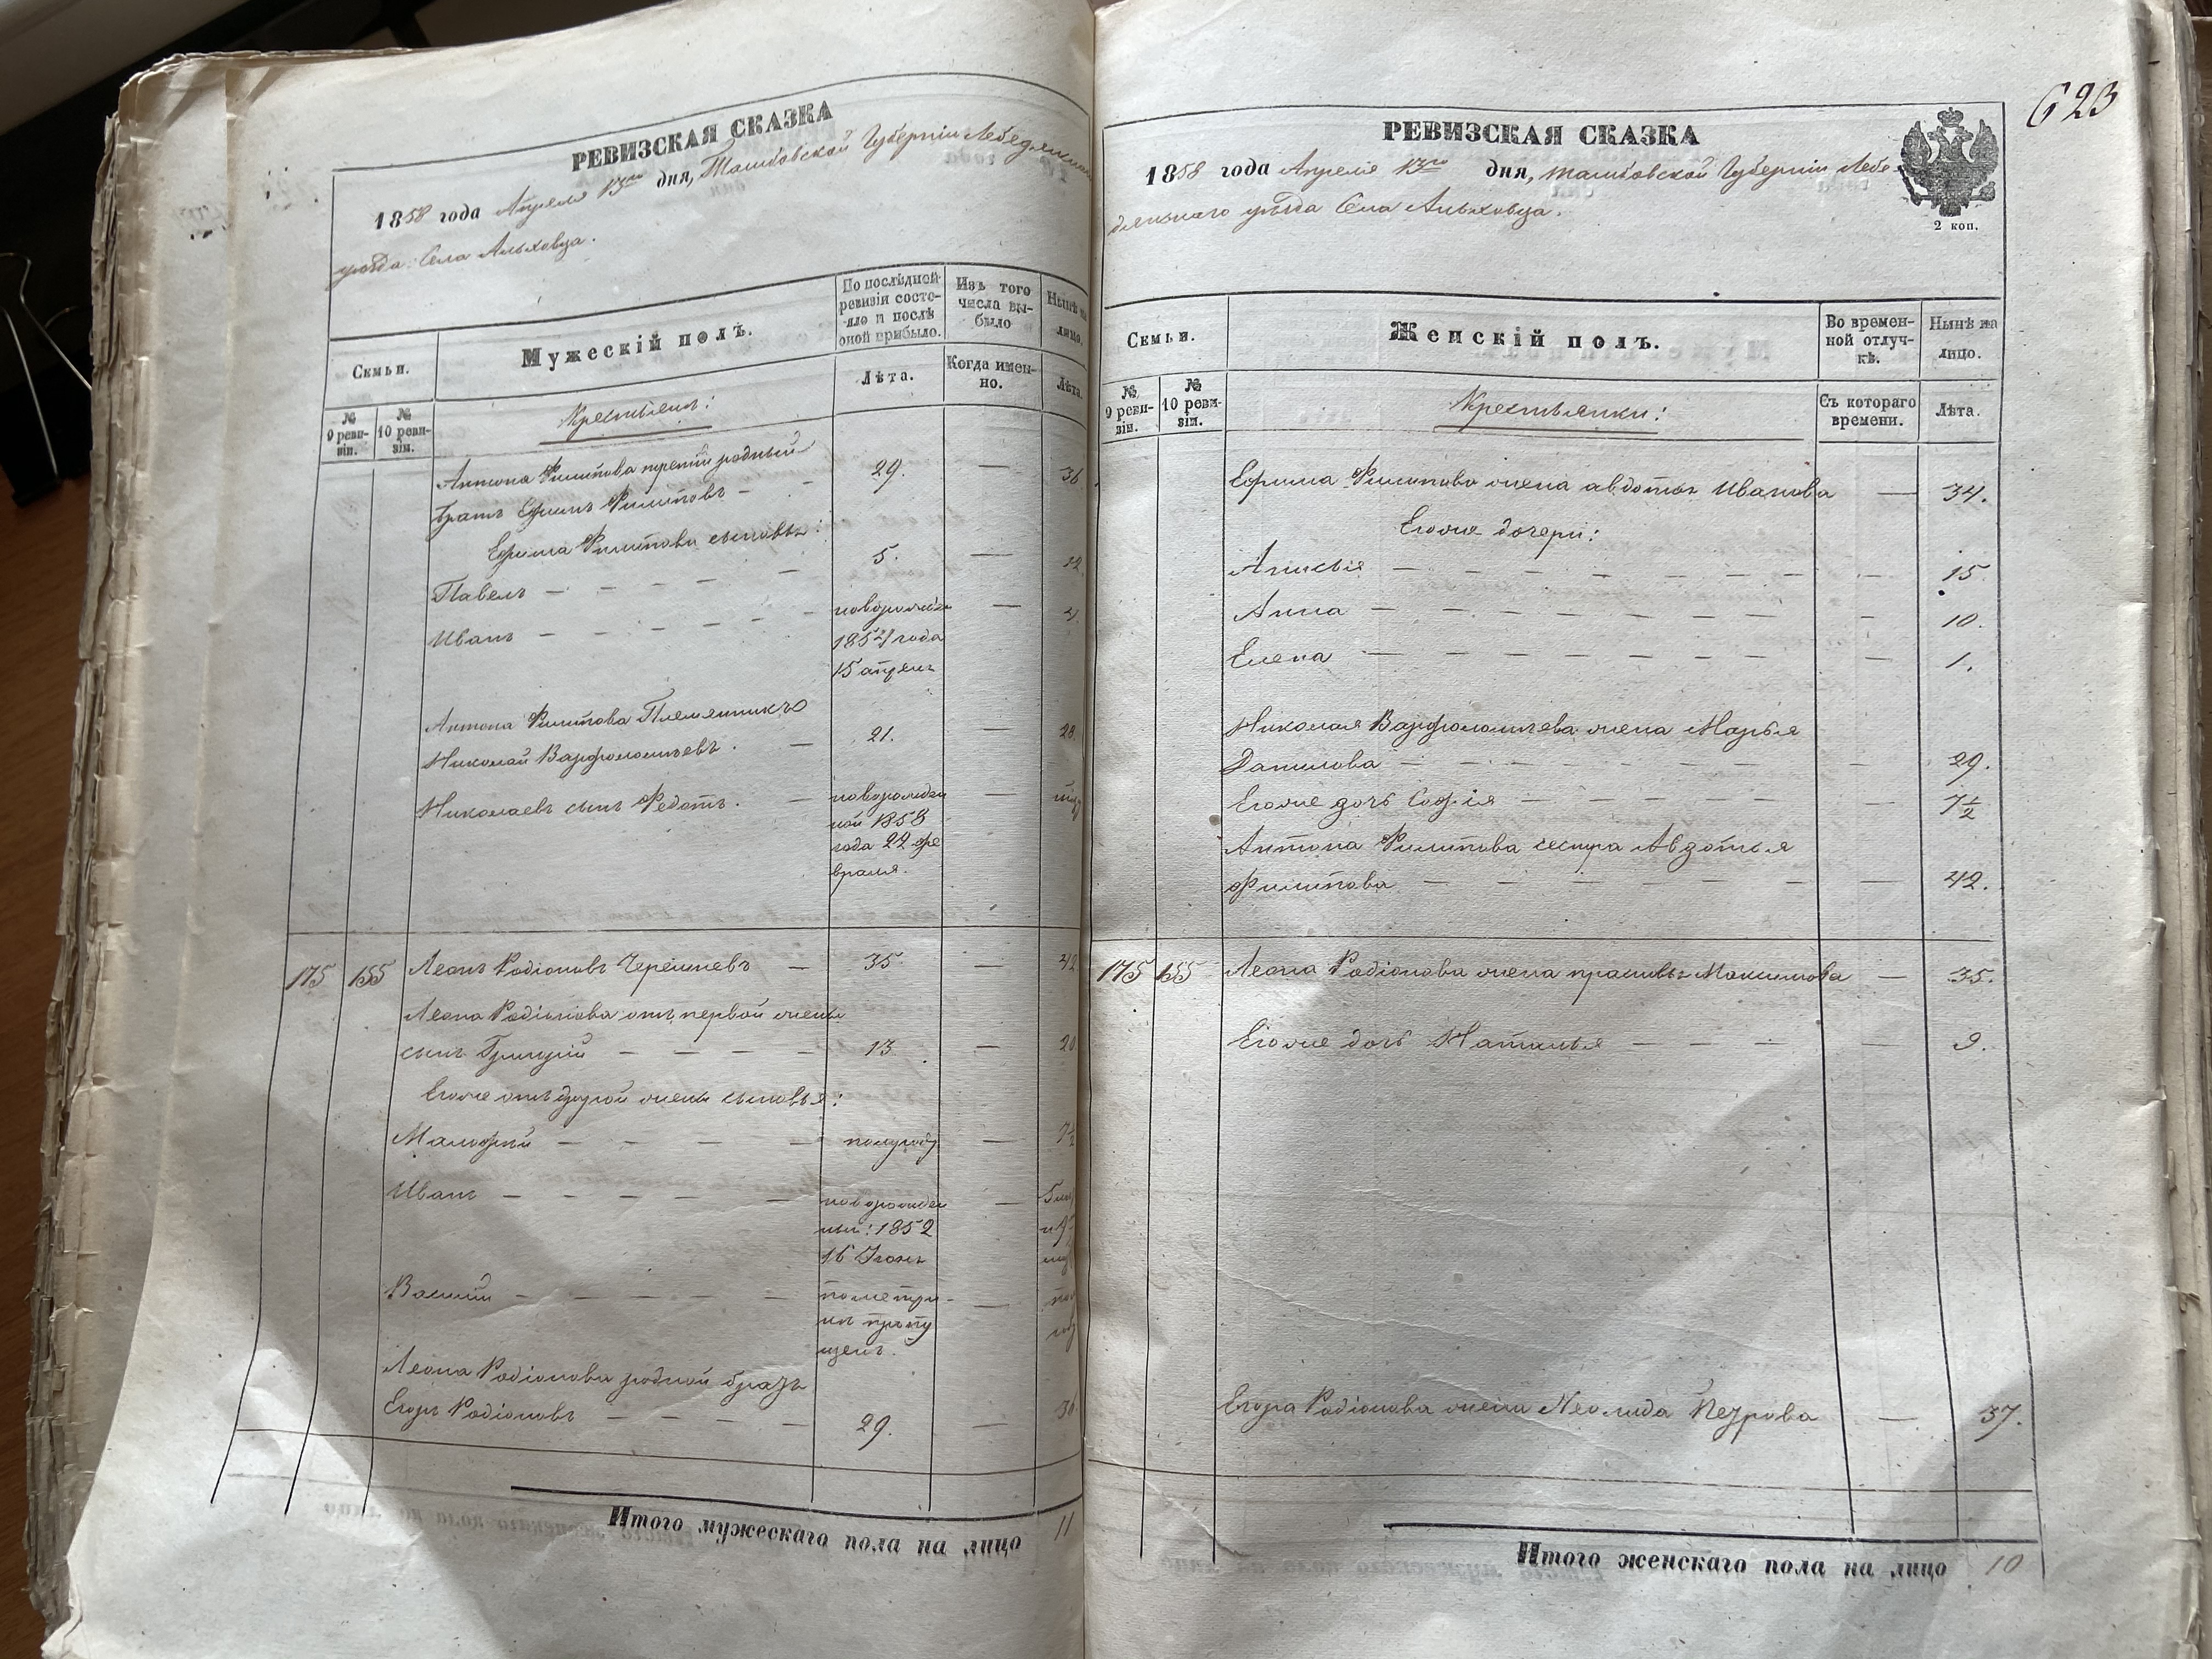 РЕВИЗСКАЯ СКАЗКА
1858 года Апреля 13го дня, Тамбовской Губернiи Лебедянскаго
уѣзда Села Альховца.
Скмьи.
Мужескiй полъ.
По послѣдней ревизiи состояло и послѣ оной прибыло.
Изъ того числа выбыло
Нынѣ на лицо.
№ 9 ревизiи.
№ 10 ревизiи.
Крестьяне:
Лѣта.
Когда именно.
Лѣта.
Антона Филипова третiй родный
братъ Ефимъ Филиповъ — 29. — 36
Ефима Филипова сыновья:
Павелъ — 5. — 12.
Иванъ — новорожден — 4
1854 года
15 апреля
Антона Филипова Племянникъ
Николай Варфоломѣевъ. — 21. — 28
Николаевъ сынъ Федотъ. — новорожден
ной 1858
года 24 фе
враля.
175 155 Леонъ Родiоновъ — 35 — 42
Леона Родiонова отъ первой жены
сынъ Григорiй — 13. — 20
Егоже отъ другой жены сыновья:
Малофѣй — полугоду — 7½
Иванъ — новорожден
ный: 1852
16 Iюня
Василiй — пометри-
ке пропу
щенъ.
Леона Родiонова родной братъ
Егоръ Родiоновъ — 29. — 36
Итого мужескаго пола на лицо 11
623
РЕВИЗСКАЯ СКАЗКА
1858 года Апреля 13го дня, Тамбовской Губернiи Лебе-
дянскаго уѣзда Села Альховца.
2 коп.
Скмьи.
Женскiй полъ.
Во временной отлучкѣ.
Нынѣ на лицо.
№ 9 ревизiи.
№ 10 ревизiи.
Крестьянки:
Съ котораго времени.
Лѣта.
Ефима Филипова жена авдотья Иванова — 34.
Егоже дочери:
— 15
Анна — 10.
Елена — 1.
Николая Варфоломѣева жена Марья
Данилова — 29.
Егоже дочь Софiя — 7½
Антона Филипова сестра Авдотья
Филипова — 42.
175 155 Леона Родiонова жена прасковья Максимова — 35.
Егоже дочь Наталья — 9.
Егора Родiонова жена Неонида Петрова — 37.
Итого женскаго пола на лицо 10